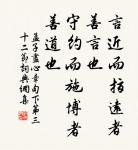 言近而指遠者
善言也
守約而施博者
善道也
孟子盡心章句下第三
十二節詞典網集